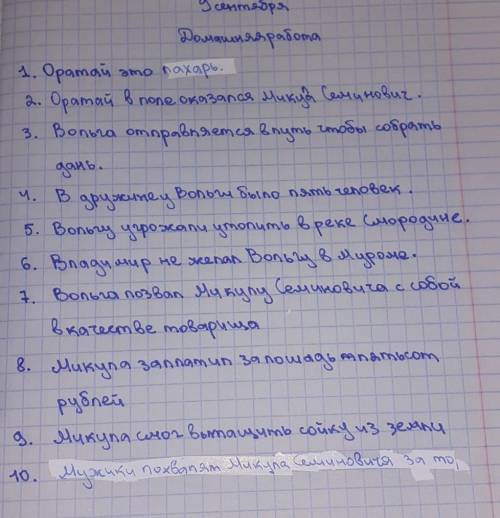 9 сентября
Домашняя работа
1. Оратай это пахарь.
2. Оратай в поле оказался Микула Семинович.
3. Вольга отправляется в путь чтобы собрать
дань.
4. В дружине у Вольги было пять человек.
5. Вольгу угрожали утопить в реке Смородине.
6. Владимир не желал Вольгу в Муроме.
7. Вольга позвал Микулу Семиновича с собой
в качестве товарища
8. Микула заплатил за лошадь пятьсот
рублей
9. Микула смог вытащить сойку из земли
10. Мужики похвалят Микула Семиновича за то,